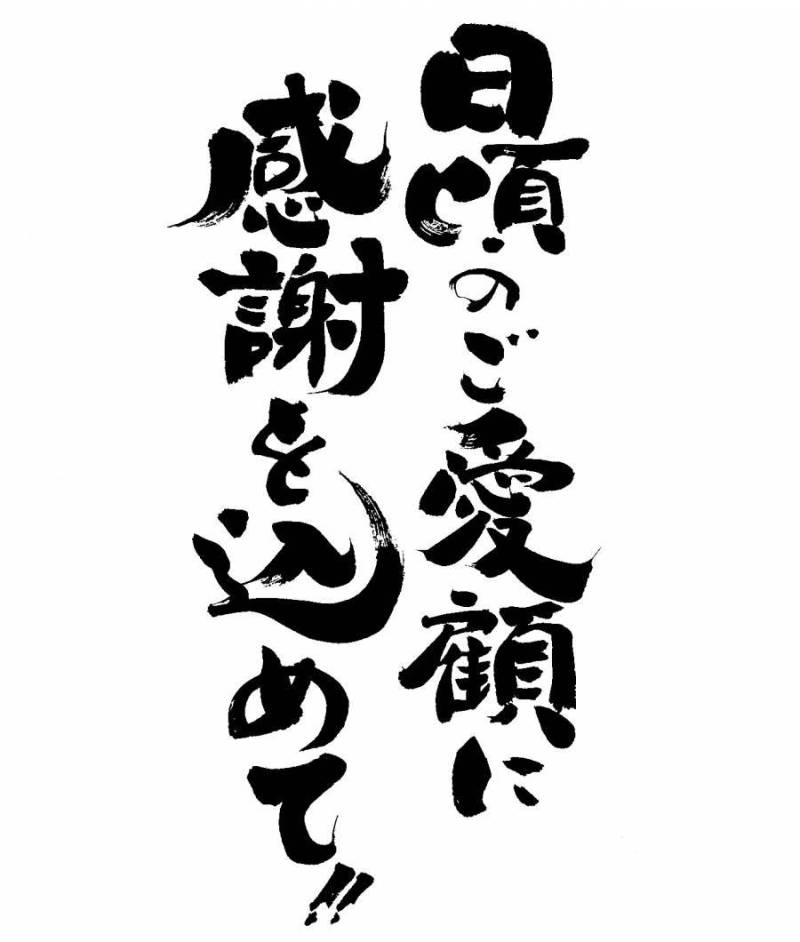 日頃のご愛顧に
感謝を込めて!!